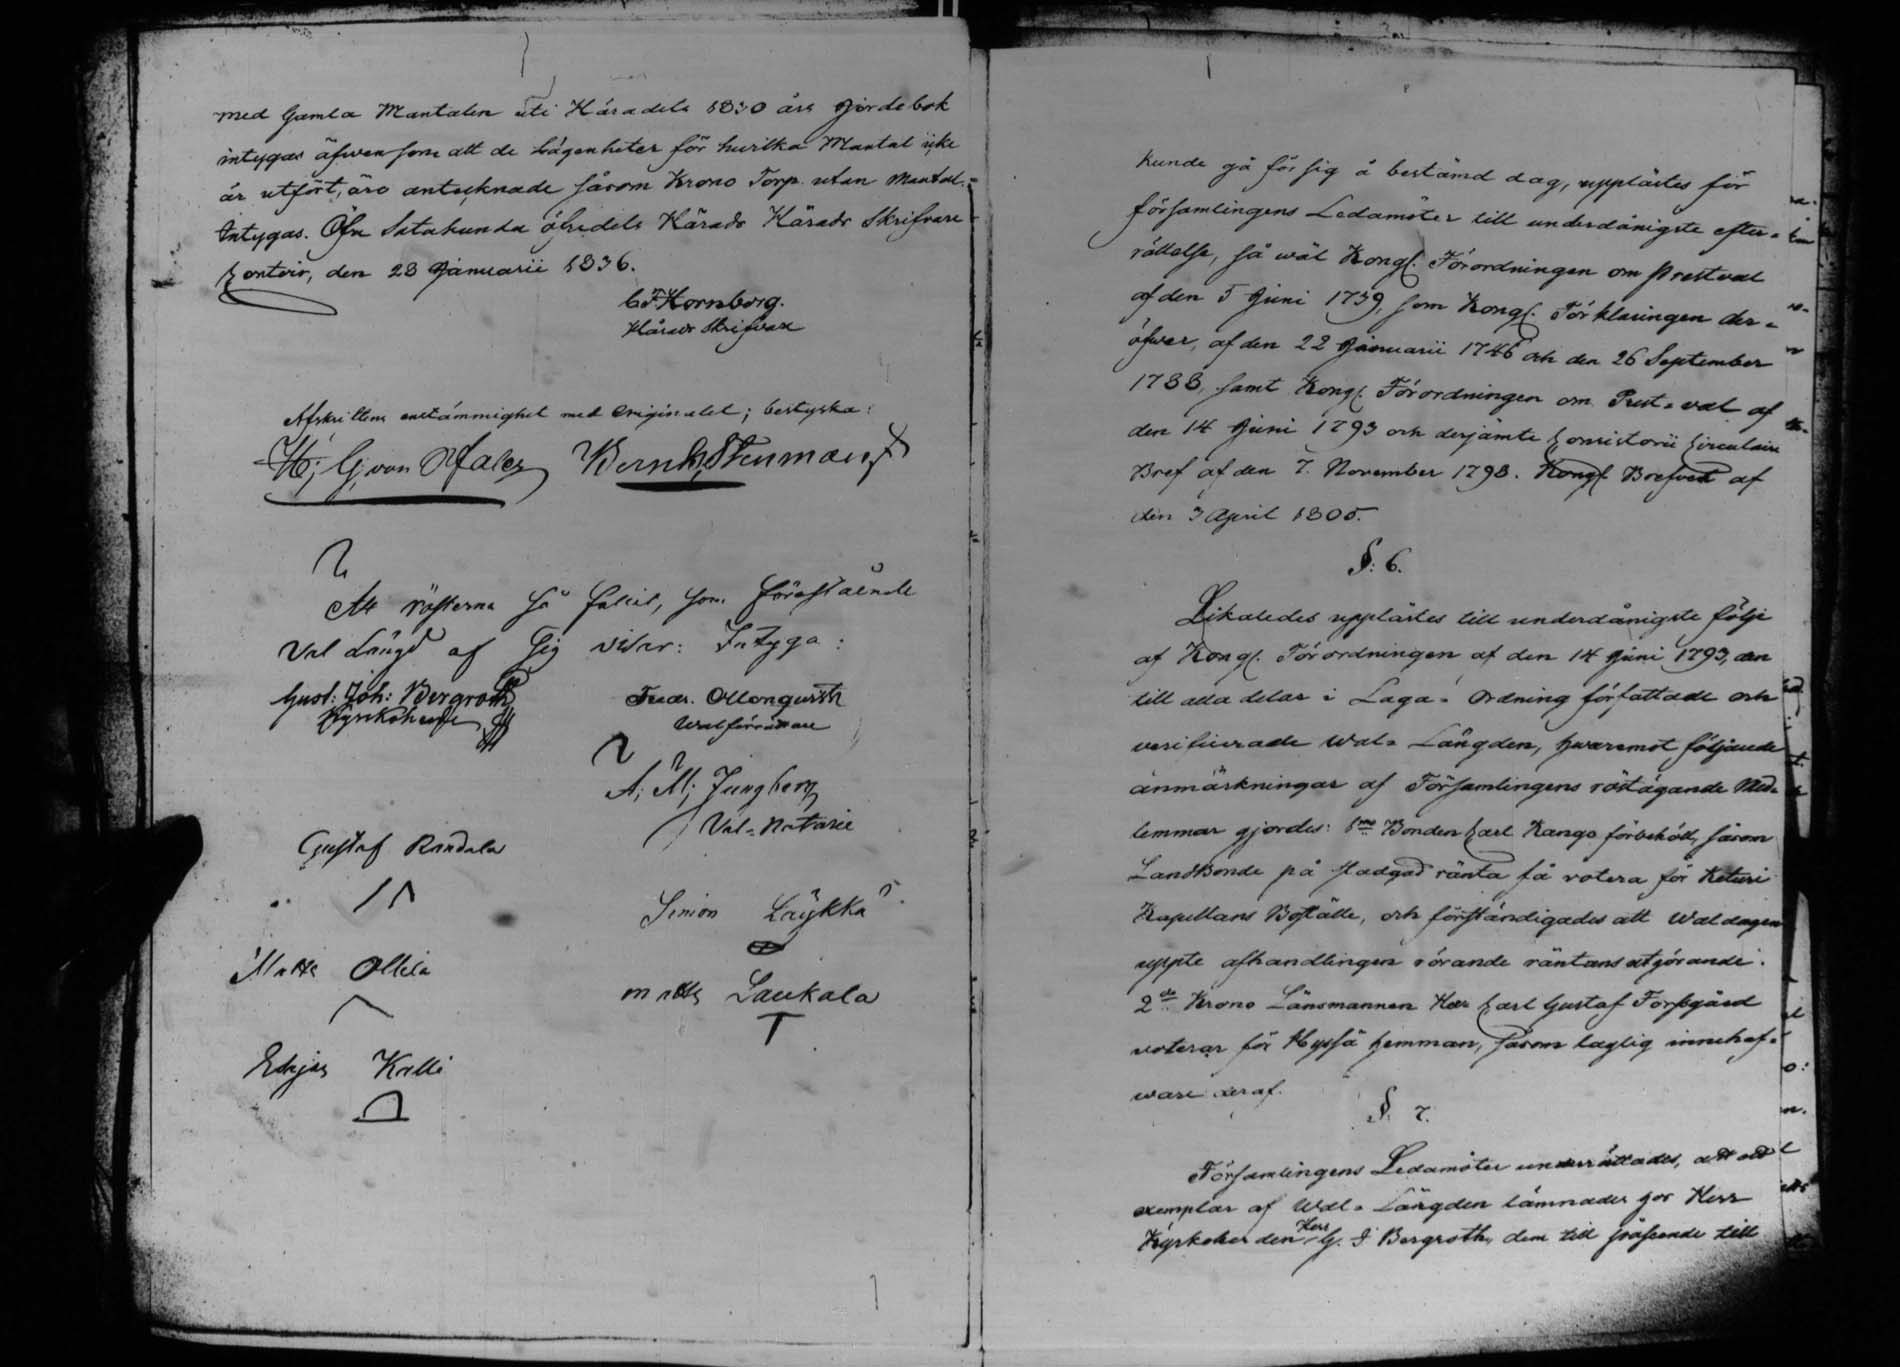 med Gamla Mantalen uti Häradets 1830 års Jordebok
intygas äfwensom att de Lägenheter för hwilka Mantal icke
är utfört, äro antecknade såsom Krono Torp utan Mantal.
Intygas. Öfre Satakunda öfredels Härads Härads Skrifvare
Contoir, den 28 Januarii 1836.
C F Hornborg.
Härads Skrifvare
Afskriftens enstämmighet med originalet; bestyrka:
G: von Bernh.
Att rösterna så fallit, som förestående
Val Längd af sig visar: Intyga:
Gust: Joh: Bergroth
Kyrkoherde
Fredr.
Walförrättare
A: M: Jungberg
Val-Notarie
Gustaf Randala
Simon Löykkä
Matts Ollila
Matts Laukala
Eskjas Kalli
kunde gå för sig å bestämd dag, upplästes för
församlingens Ledamöter till underdånigste efter-
rättelse, så wäl Kongl. Förordningen om Prestval
af den 5 Juni 1739, som Kongl. Förklaringen der-
öfwer, af den 22 Januarii 1746 och den 26 September
1783, samt Kongl. Förordningen om Prest-val af
den 14 Juni 1793 och derjämte Consistorii Circulaire
Bref af den 7. November 1793. Kongl. Brefvet af
den 3 April 1805.
§: 6.
Likaledes upplästes till underdånigste följe
af Kongl. Förordningen af den 14 Juni 1793, den
till alla delar i Laga- Ordning författade och
verificerade Wal-Längden, hwaremot följande
anmärkningar af Församlingens röstägande Med-
lemmar gjordes: 1mo Bonden Carl Kango förbehöll, såsom
Landbonde på stadgad ränta få votera för Keturi
Kapellans Boställe, och förständigades att Waldagen
uppte afhandlingen rörande räntans utgörande.
2do Krono Länsmannen Herr Carl Gustaf Forsgård
voterar för Hyssä hemman, såsom laglig innehaf-
ware deraf.
§. 7.
Församlingens Ledamöter underrättades, att ett
exemplar af Wal-Längden lämnades hos Herr
Kyrkoherden Herr G. J Bergroth, dem till påseende till